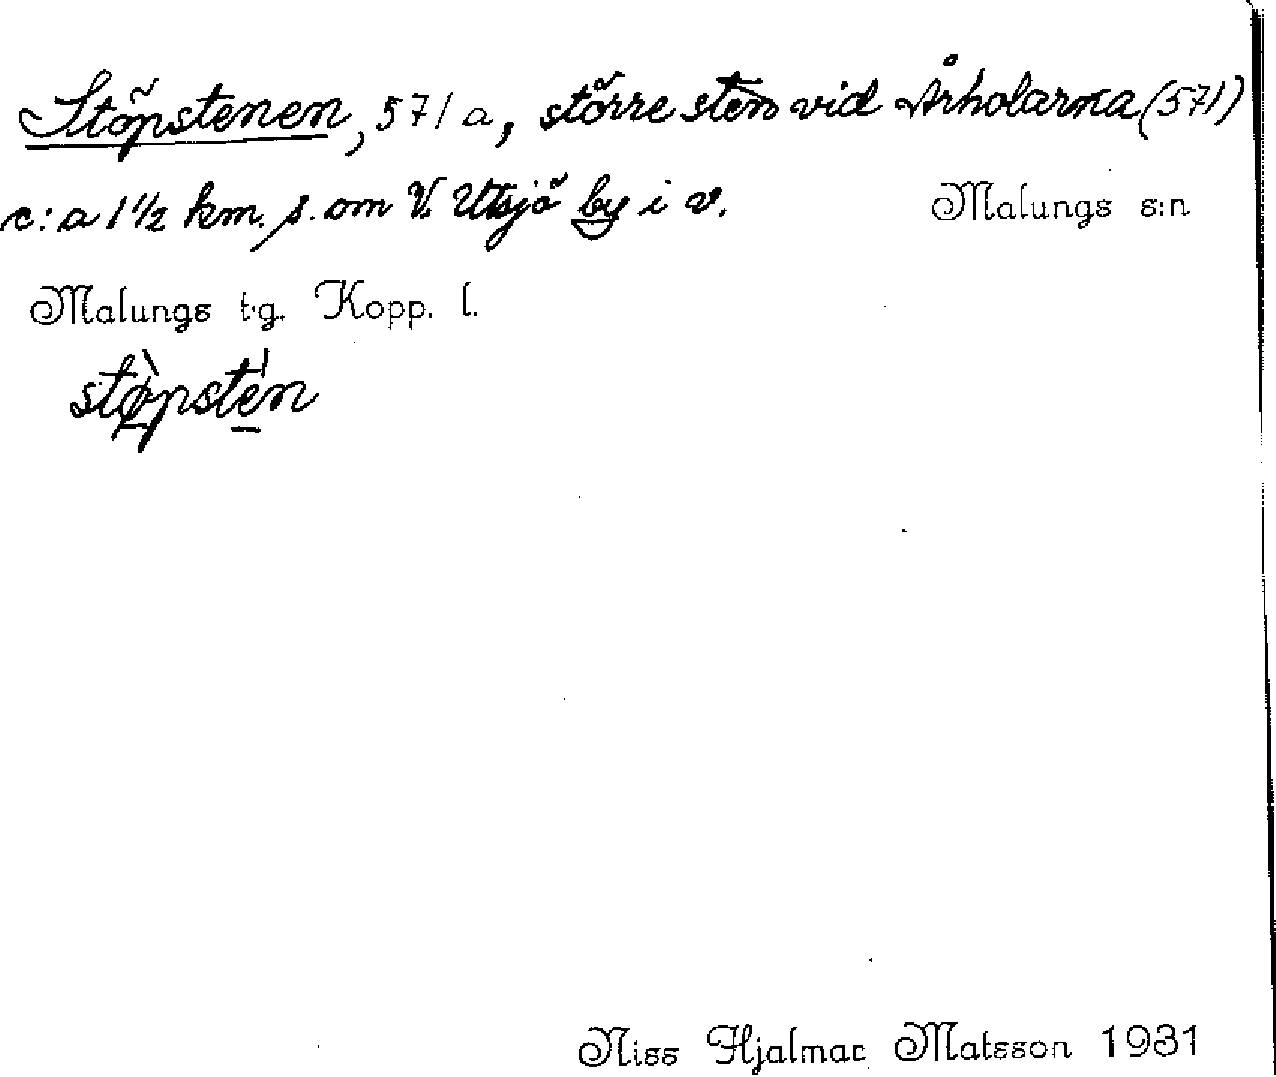 Stöpstenen, 571 a, större sten vid Årholarna (571)
c:a 1 1/2 km. s. om V. Utsjö by i v. Malungs s:n
Malungs t.g. Kopp. l.
stöpste̱n
Niss Hjalmar Matsson 1931